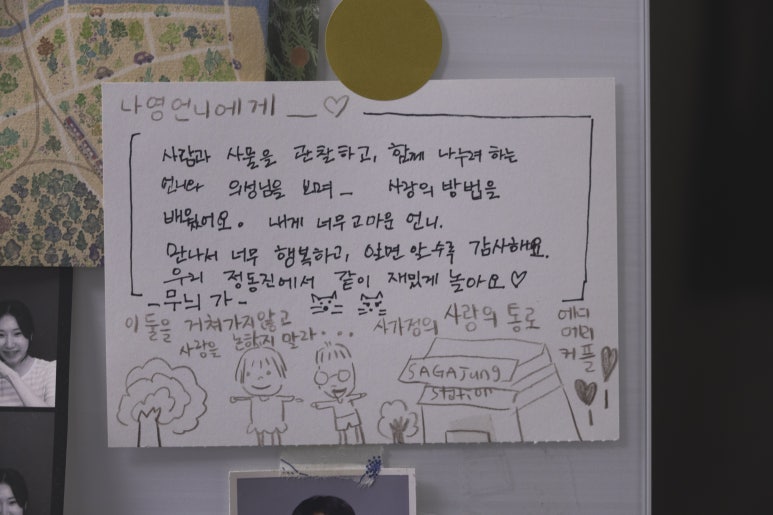 나영언니에게 _ ♡
사람과 사물을 관찰하고, 함께 나누려 하는
언니와 의성님을 보며_ 사랑의 방법을
배웠어요. 내게 너무 고마운 언니.
만나서 너무 행복하고, 알면 알수록 감사해요.
우리 정동진에서 같이 재밌게 놀아요♡
-무늬 가-
이 둘을 거쳐가지않고
사랑을 논하지 말라...
사가정의 사랑의 통로
에너메리
커플
SAGAJUNG
Station